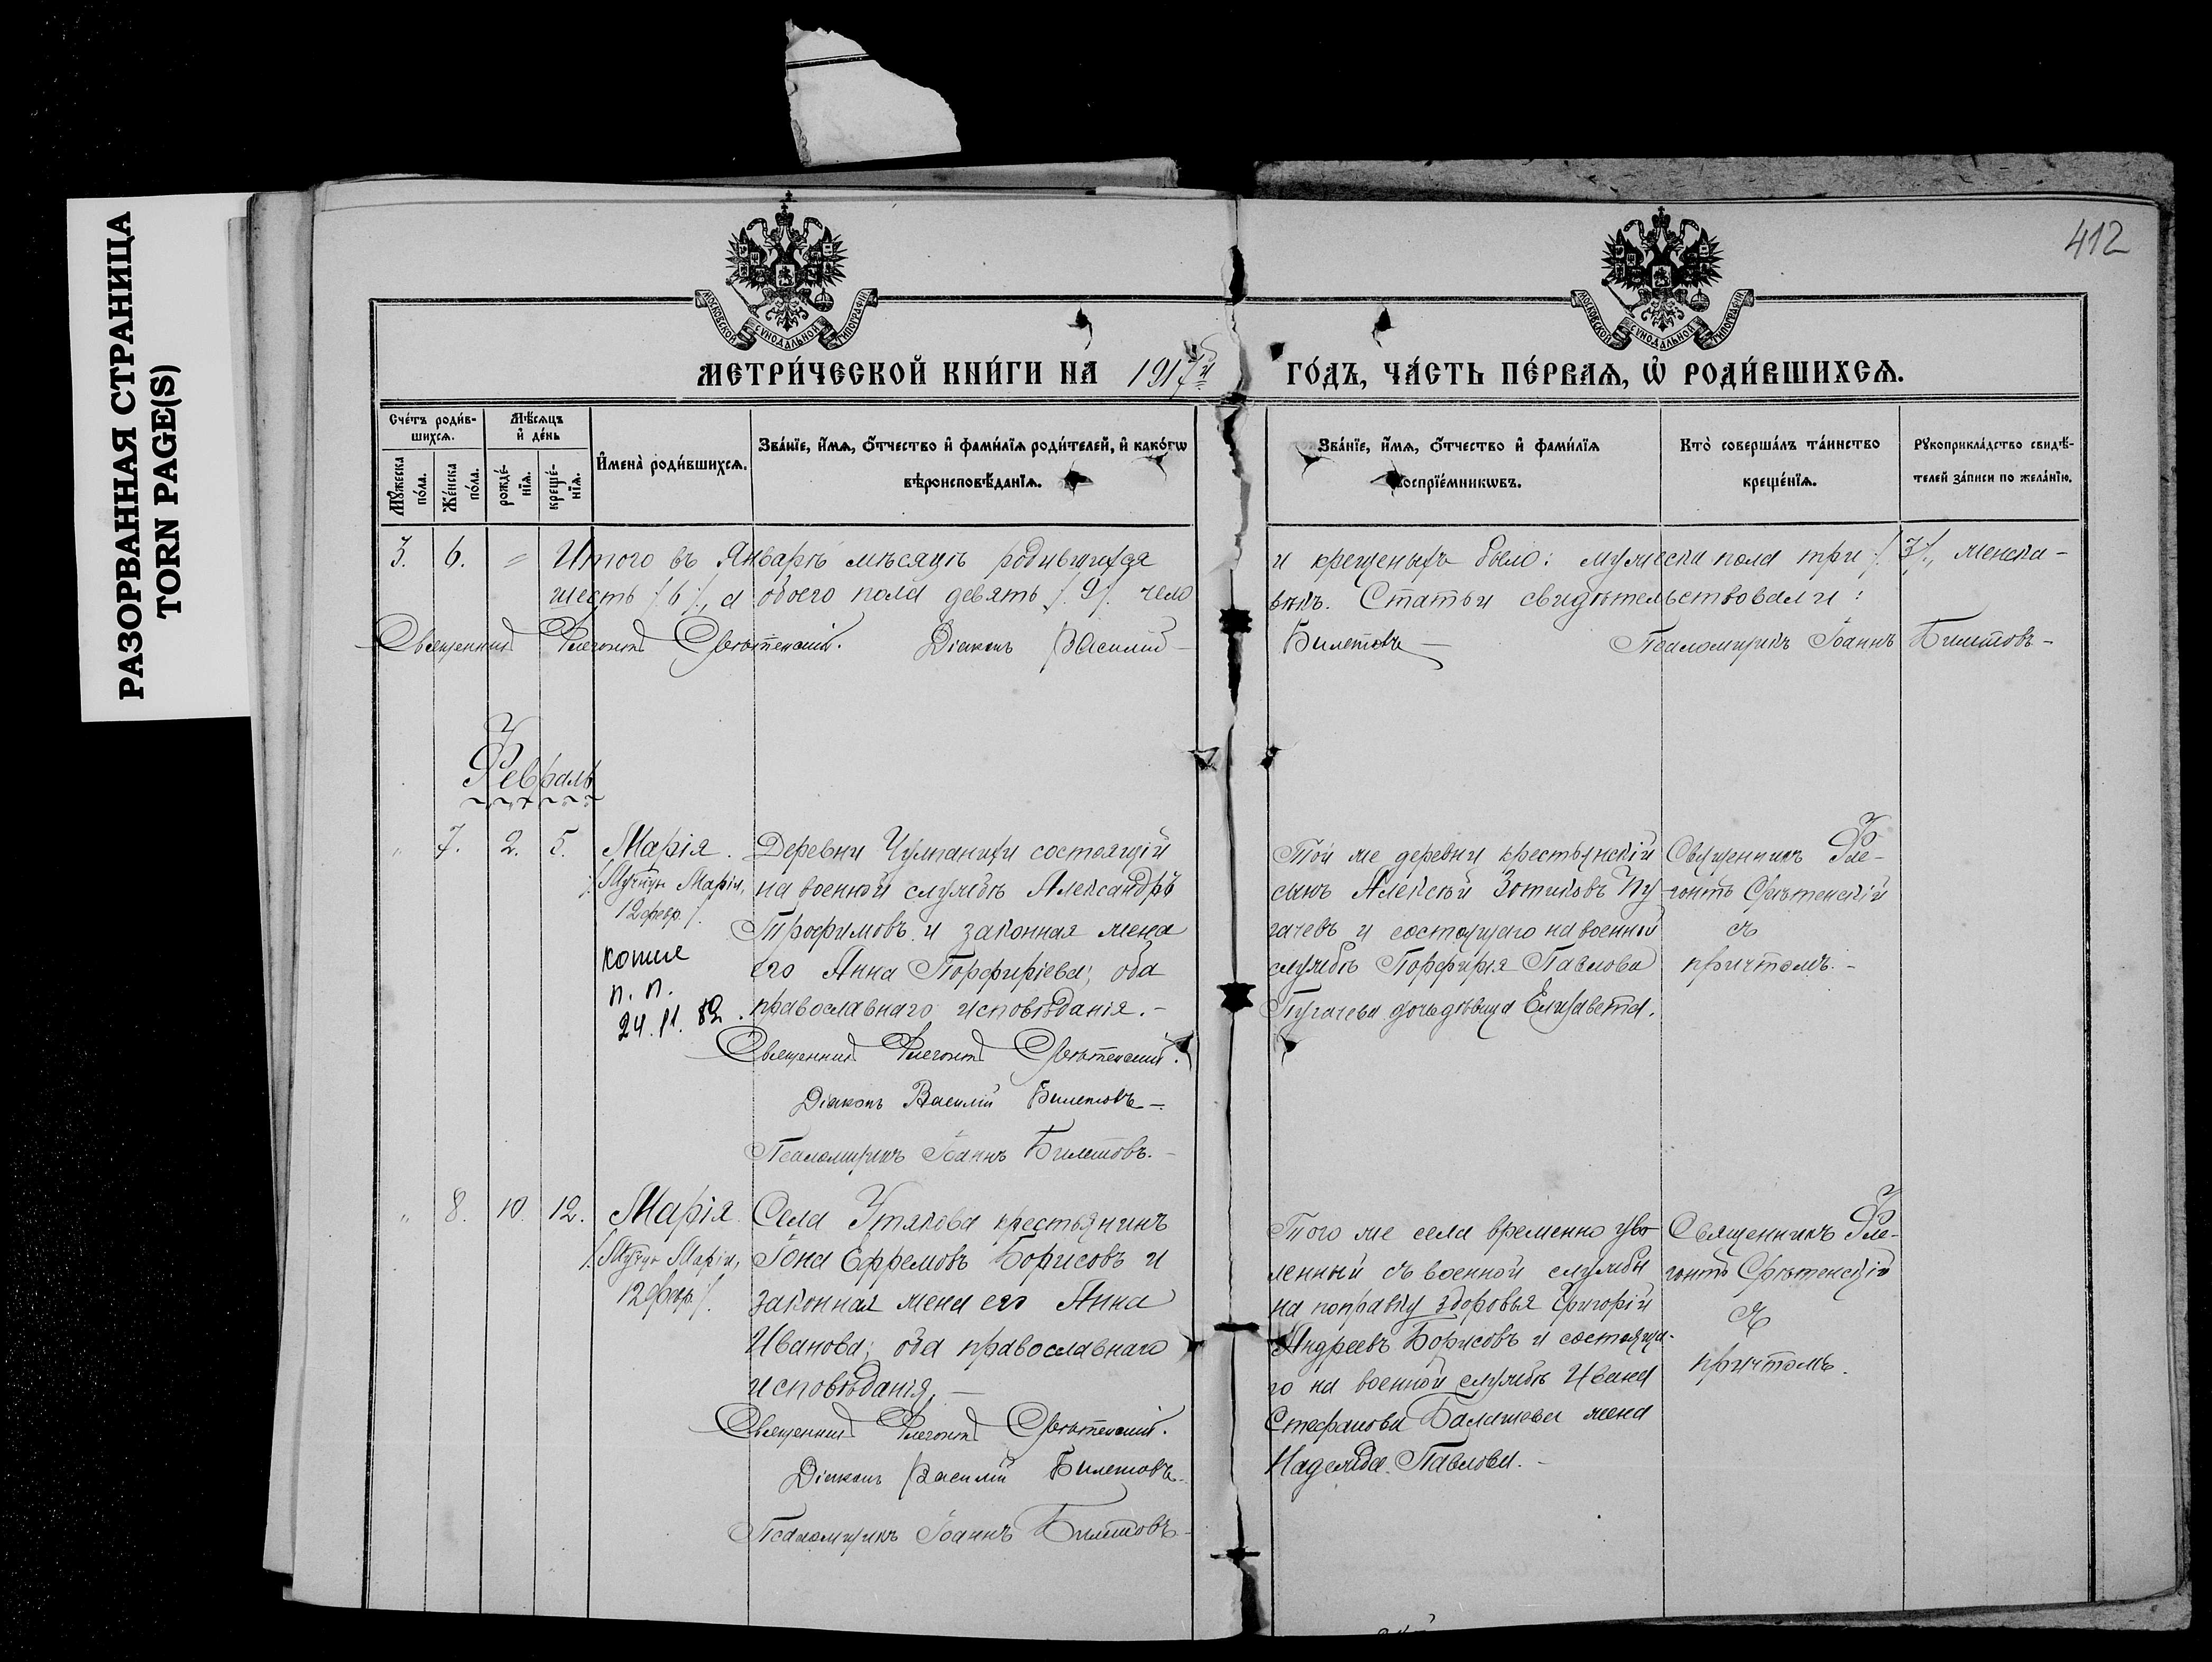 РАЗОРВАННАЯ СТРАНИЦА
TORN PAGE(S)
412
МОСКОВСКОЙ СѴНОДАЛЬНОЙ ТИПОГРАФІИ
МОСКОВСКОЙ СѴНОДАЛЬНОЙ ТИПОГРАФІИ
МЕТРИ́ЧЕСКОЙ КНИ́ГИ НА 1917й ГО́ДЪ, ЧА́СТЬ ПЕ́РВАѦ, Ѡ РОДИ́ВШИХСѦ.
Сче́тъ роди́в-
шихсѧ.
Мѣ́сѧцъ
и де́нь
Мꙋ́жеска
по́ла.
Же́нска
по́ла.
рожде́-
нїѧ.
креще́-
нїѧ.
Имена̀ роди́вшихсѧ.
Зва́нїе, и́мѧ, о́тчество и фами́лїѧ роди́телей, и како́гѡ
вѣроисповѣ́данїѧ.
Зва́нїе, и́мѧ, о́тчество и фами́лїѧ
воспрїе́мникѡвъ.
Кто̀ соверша́лъ та́инство
креще́нїѧ.
Рꙋкоприкла́дство свидѣ́-
телей за́писи по жела́нїю.
3. 6. " Итого въ Январѣ мѣсяцѣ родившихся и крещеныхъ было: мужеска пола три /.3/., женска-
шесть /6/., а обоего пола девять /.9/. чело вѣкъ. Статьи свидѣтельствовали:
Священникъ Флегонтъ Срѣтенскій. Діаконъ Василій Билетовъ Псаломщикъ Іоаннъ Билетовъ-
Февраль
" 7. 2. 5. Марія.
/.Мучцы Маріи,
12 февр./.
копия
п. п.
24.11.82.
Деревни Чулпанихи состоящій
на военной службѣ Александръ
Трофимовъ и законная жена
его Анна Порфиріева; оба
православнаго исповѣданія.-
Священникъ Флегонтъ Срѣтенскій.
Діаконъ Василій Билетовъ-
Псаломщикъ Іоаннъ Билетовъ.-
Той же деревни крестьянскій
сынъ Алексѣй Зотиковъ Пу-
гачевъ и состоящаго на военной
службѣ Порфирія Павлова
Пугачева дочь дѣвица Елизавета.
Священникъ Фле-
гонтъ Срѣтенскій
съ
причтомъ.-
" 8. 10. 12. Марія
/.Мучцы Маріи,
12 февр./.
Села Утякова крестьянинъ
Іона Ефремовъ Борисовъ и
законная жена его Анна
Иванова; оба православнаго
исповѣданія.-
Священникъ Флегонтъ Срѣтенскій.
Діаконъ Василій Билетовъ-
Псаломщикъ Іоаннъ Билетовъ-
Того же села временно уво
ленный съ военной службы
на поправку здоровья Григорій
Андреевъ Борисовъ и состояща-
го на военной службѣ Ивана
Стефанова Балашева жена
Надежда Павлова.-
Священникъ Фле-
гонтъ Срѣтенскій
съ
причтомъ.